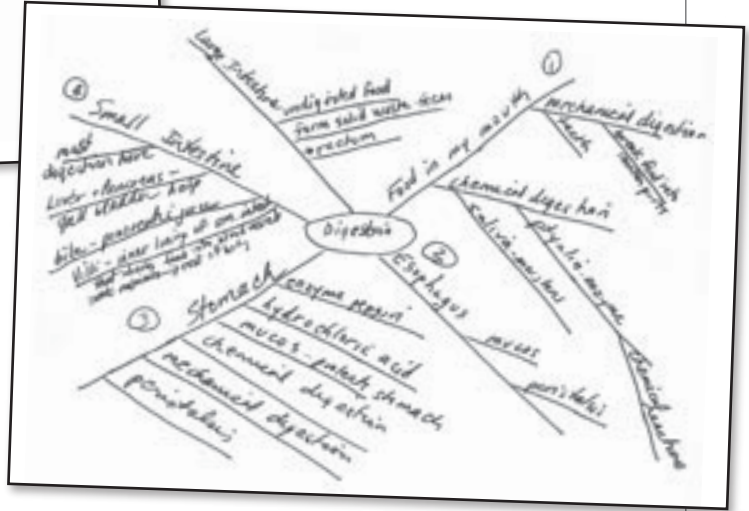 Digestion
1
Food in my mouth
mechanical digestion
teeth
chemical digestion
saliva - moistens
ptyalin - enzyme
chemical reactions
2
Esophagus
mucos
peristalsis
3
Stomach
enzyme pepsin
hydrochloric acid
mucos - protects stomach
chemical digestion
mechanical digestion
peristalsis
4
Small Intestine
most
digestion here
Liver - Pancreas -
gall bladder - help
bile - pancreatic juices
Villi - inner lining of
Large Intestine
undigested food
form solid waste feces
rectum